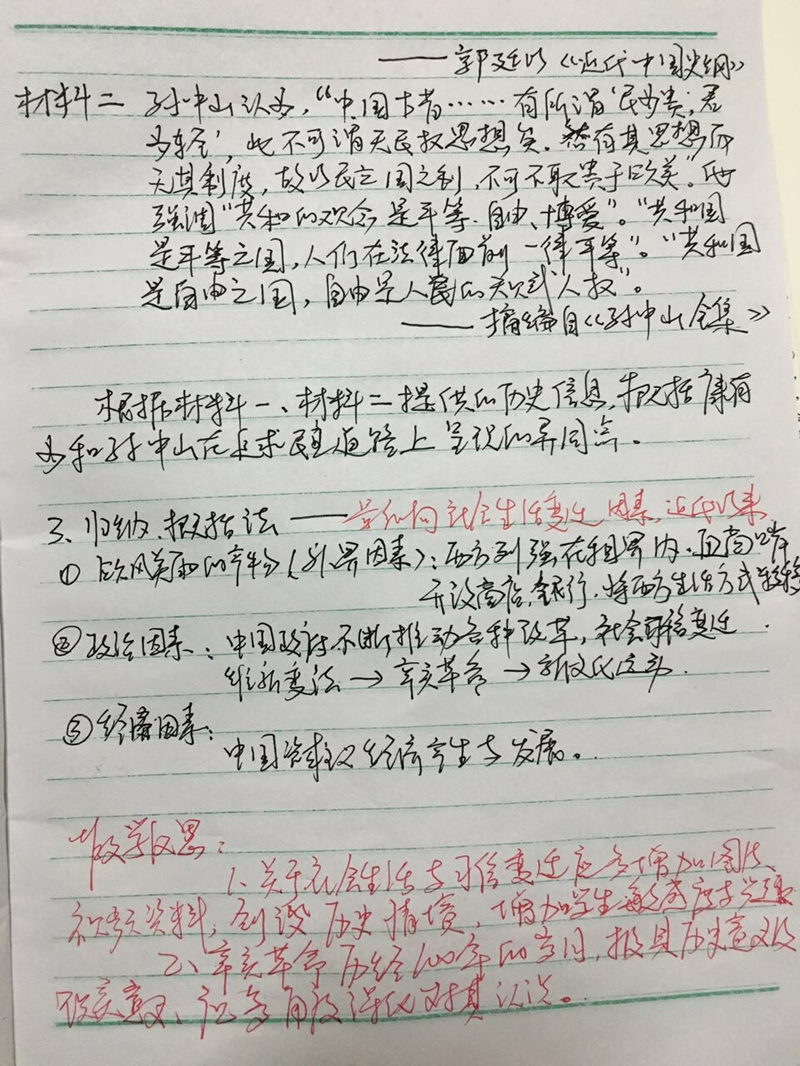 ——郭廷以《近代中国史纲》
材料二 孙中山认为，“中国古昔……有所谓‘民为贵，君
为轻’，此不可谓无民权思想矣。然有其思想而
无其制度，故以民立国之制，不可不取资于欧美”。他
强调“共和的观念是平等、自由、博爱”。“共和国
是平等之国，人们在法律面前一律平等”。“共和国
是自由之国，自由是人民的天赋人权”。
——摘编自《孙中山全集》
根据材料一、材料二提供的历史信息，概括康有
为和孙中山在追求民主道路上呈现的异同点。
3、归纳、概括法——导致社会生活变迁因素，近代以来
① 欧风美雨的(外界因素)：西方列强在租界内、通商口岸
开设商店、银行，将西方生活方式
②政治因素：中国政府不断推动各种改革，社会习俗变迁．
维新变法→辛亥革命→新文化运动．
③经济因素：
中国资本主义经济产生与发展。
教学反思：
1、关于社会生活与习俗变迁应多增加图片、
视频资料，创设历史情境，增加学生敏感度与兴趣
2、辛亥革命历经100年的岁月，极具历史意义及
现实意义、应多角度强化对其认识。